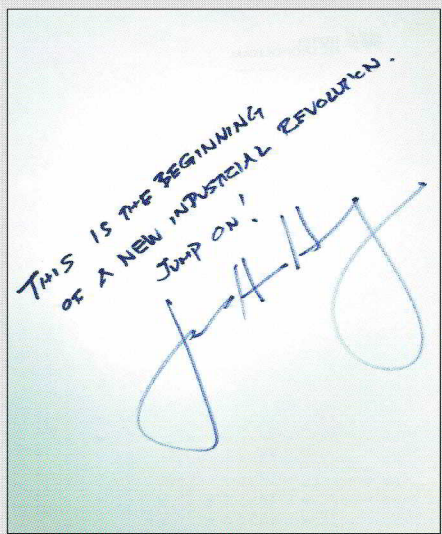 THIS IS THE BEGINNING
OF A NEW INDUSTRIAL REVOLUTION.
JUMP ON!